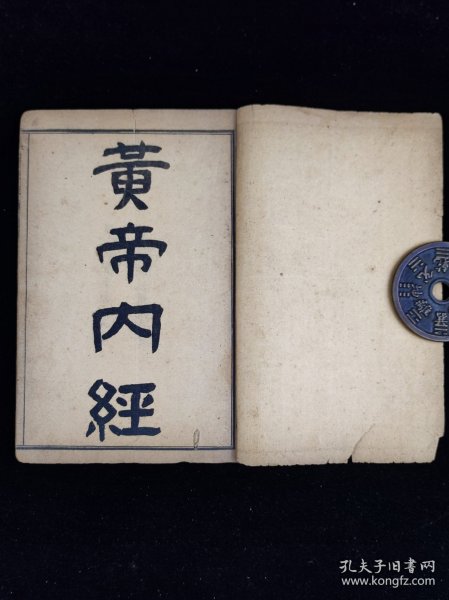 黃帝内經
孔夫子旧书网
www.kongfz.com